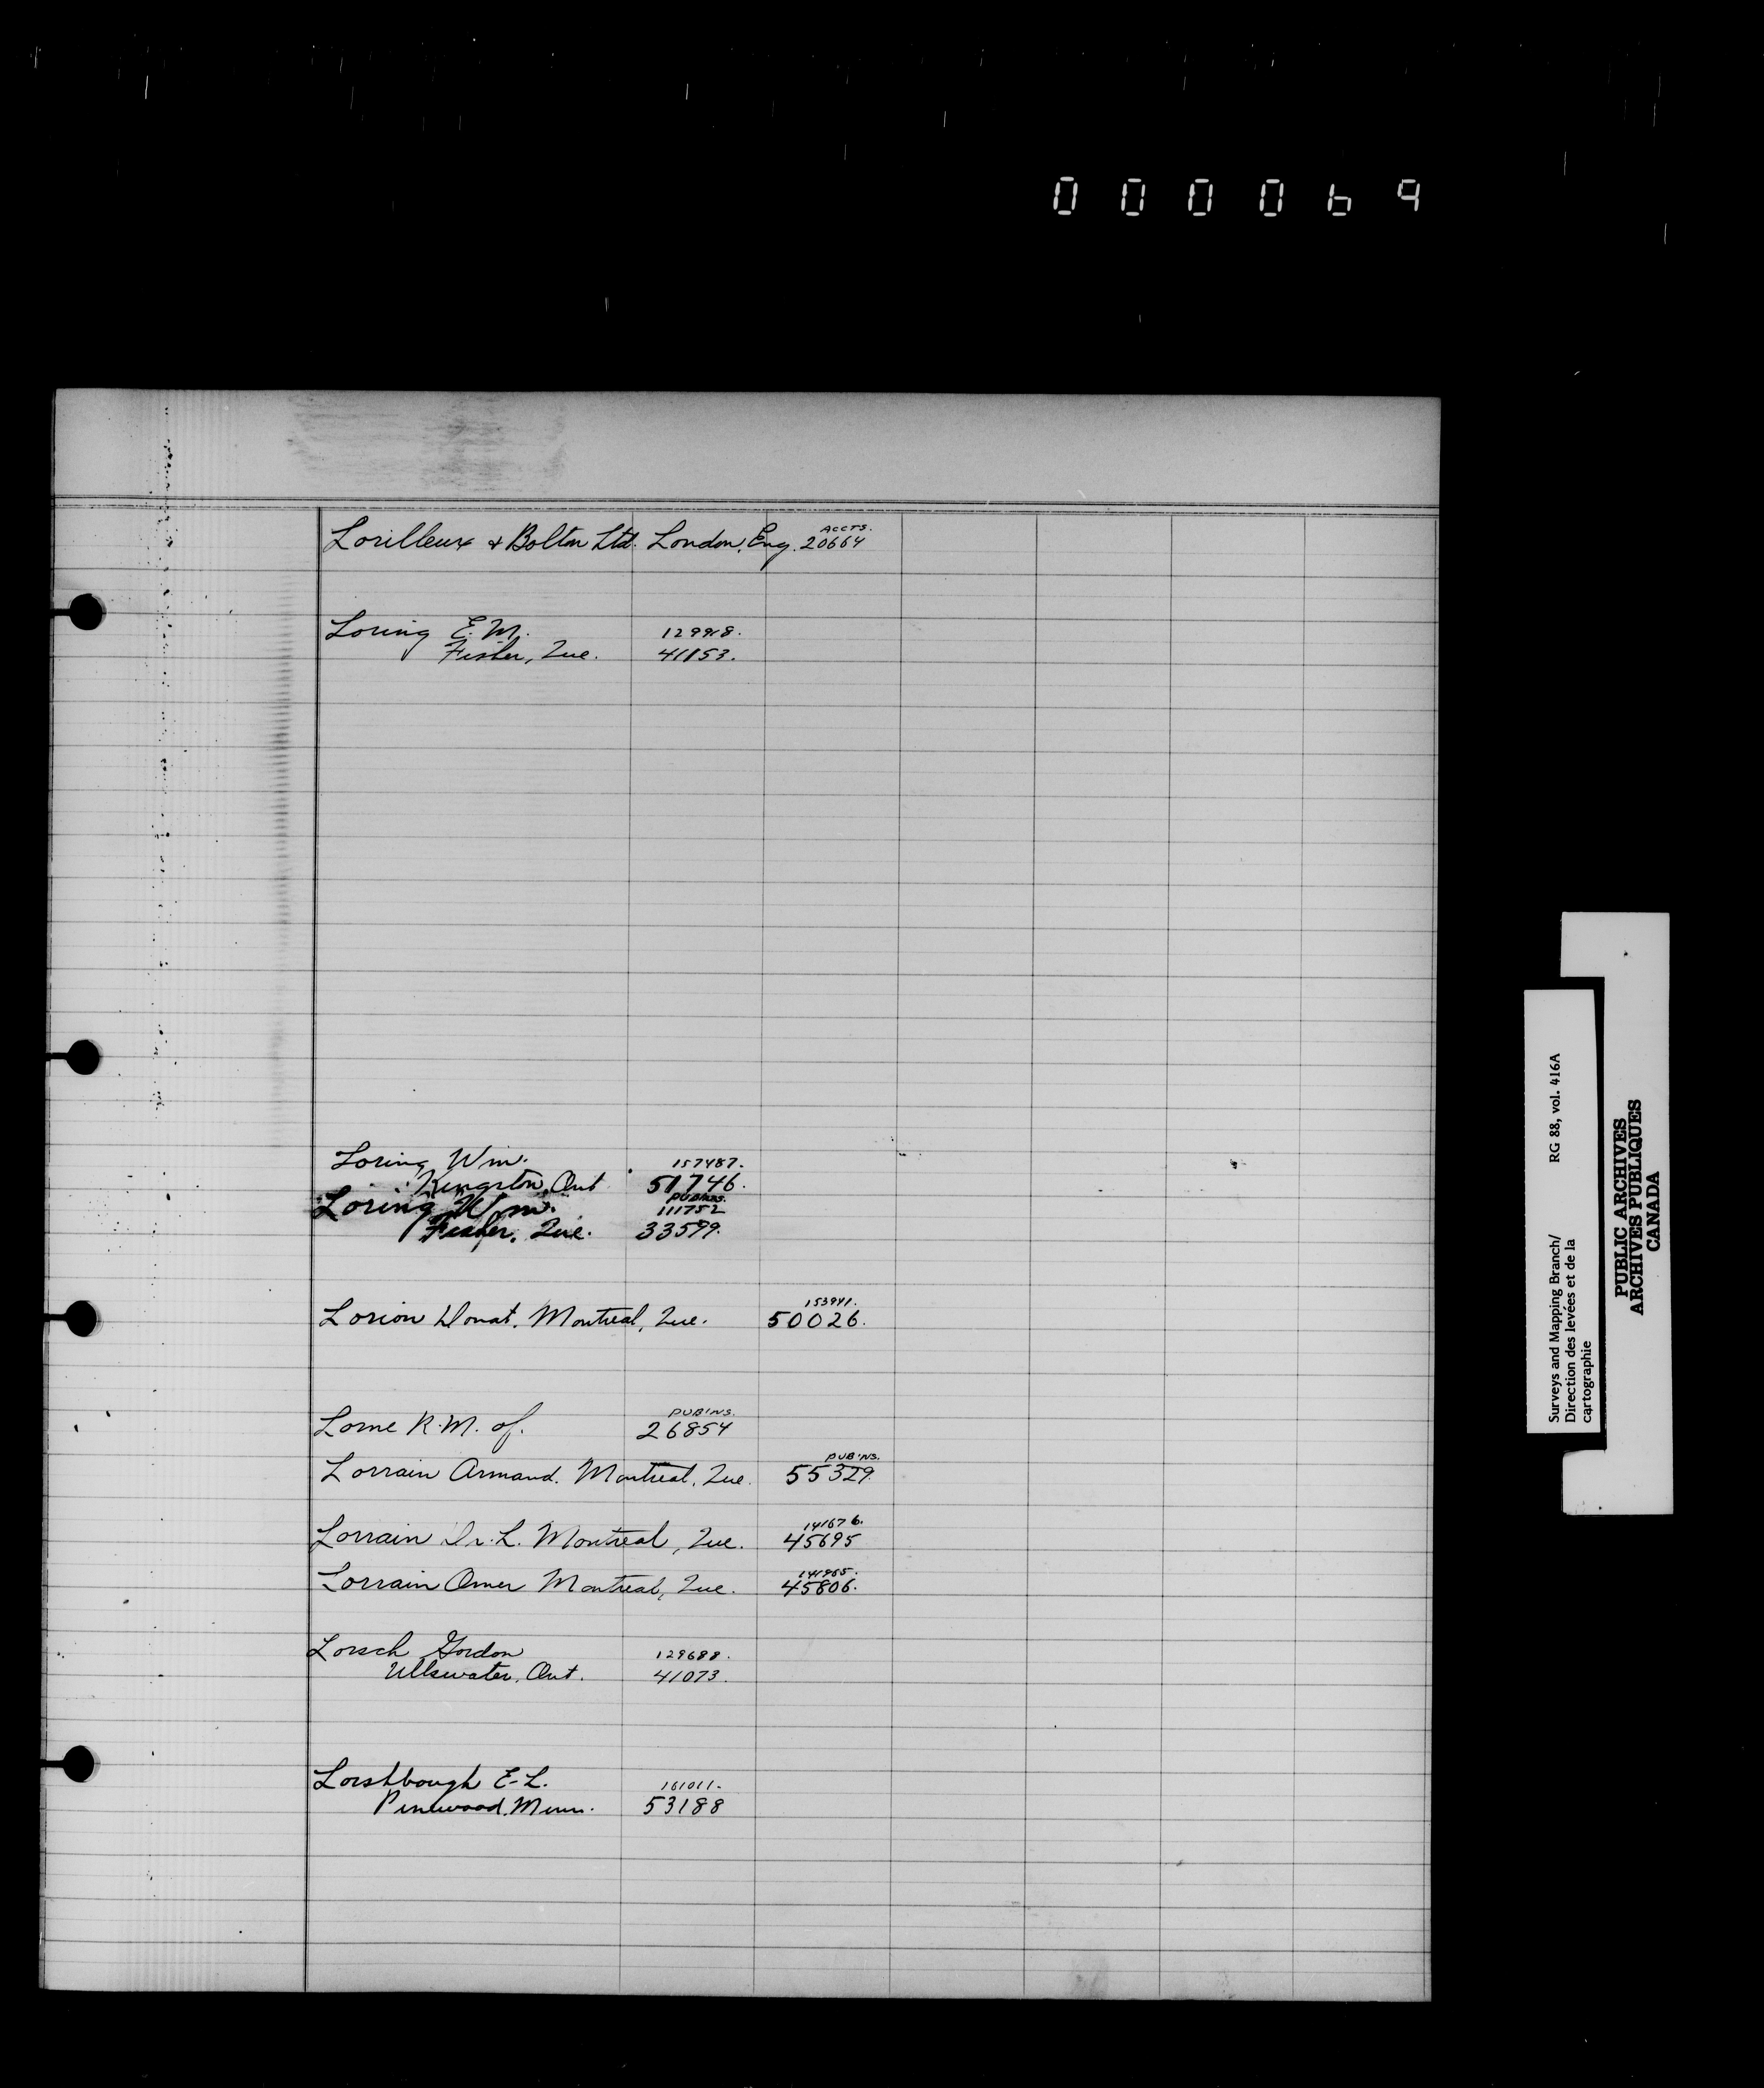 000069
ACCTS.
Lorilleux & Bolton Ltd. London, Eng. 20664
Loring E. M. 129918.
Fisher, Que. 41153.
Loring Wm. 157487.
Kingston, Ont 51746.
PUB'NS.
Loring Wm. 111752
Fisher, Que. 33599.
153941.
Lorion Donat. Montreal, Que. 50026.
PUB'NS.
Lorne R.M. of. 26854
PUB'NS.
Lorrain Armand. Montreal, Que. 55329.
141676.
Lorrain Dr. L. Montreal, Que. 45695
141965.
Lorrain Omer Montreal, Que. 45806.
Lorsch Gordon 129688.
Ullswater, Ont. 41073.
Lorshbough E. L. 161011.
Pinewood, Minn. 53188
Surveys and Mapping Branch/ RG 88, vol. 416A
Direction des levées et de la
cartographie
PUBLIC ARCHIVES
ARCHIVES PUBLIQUES
CANADA